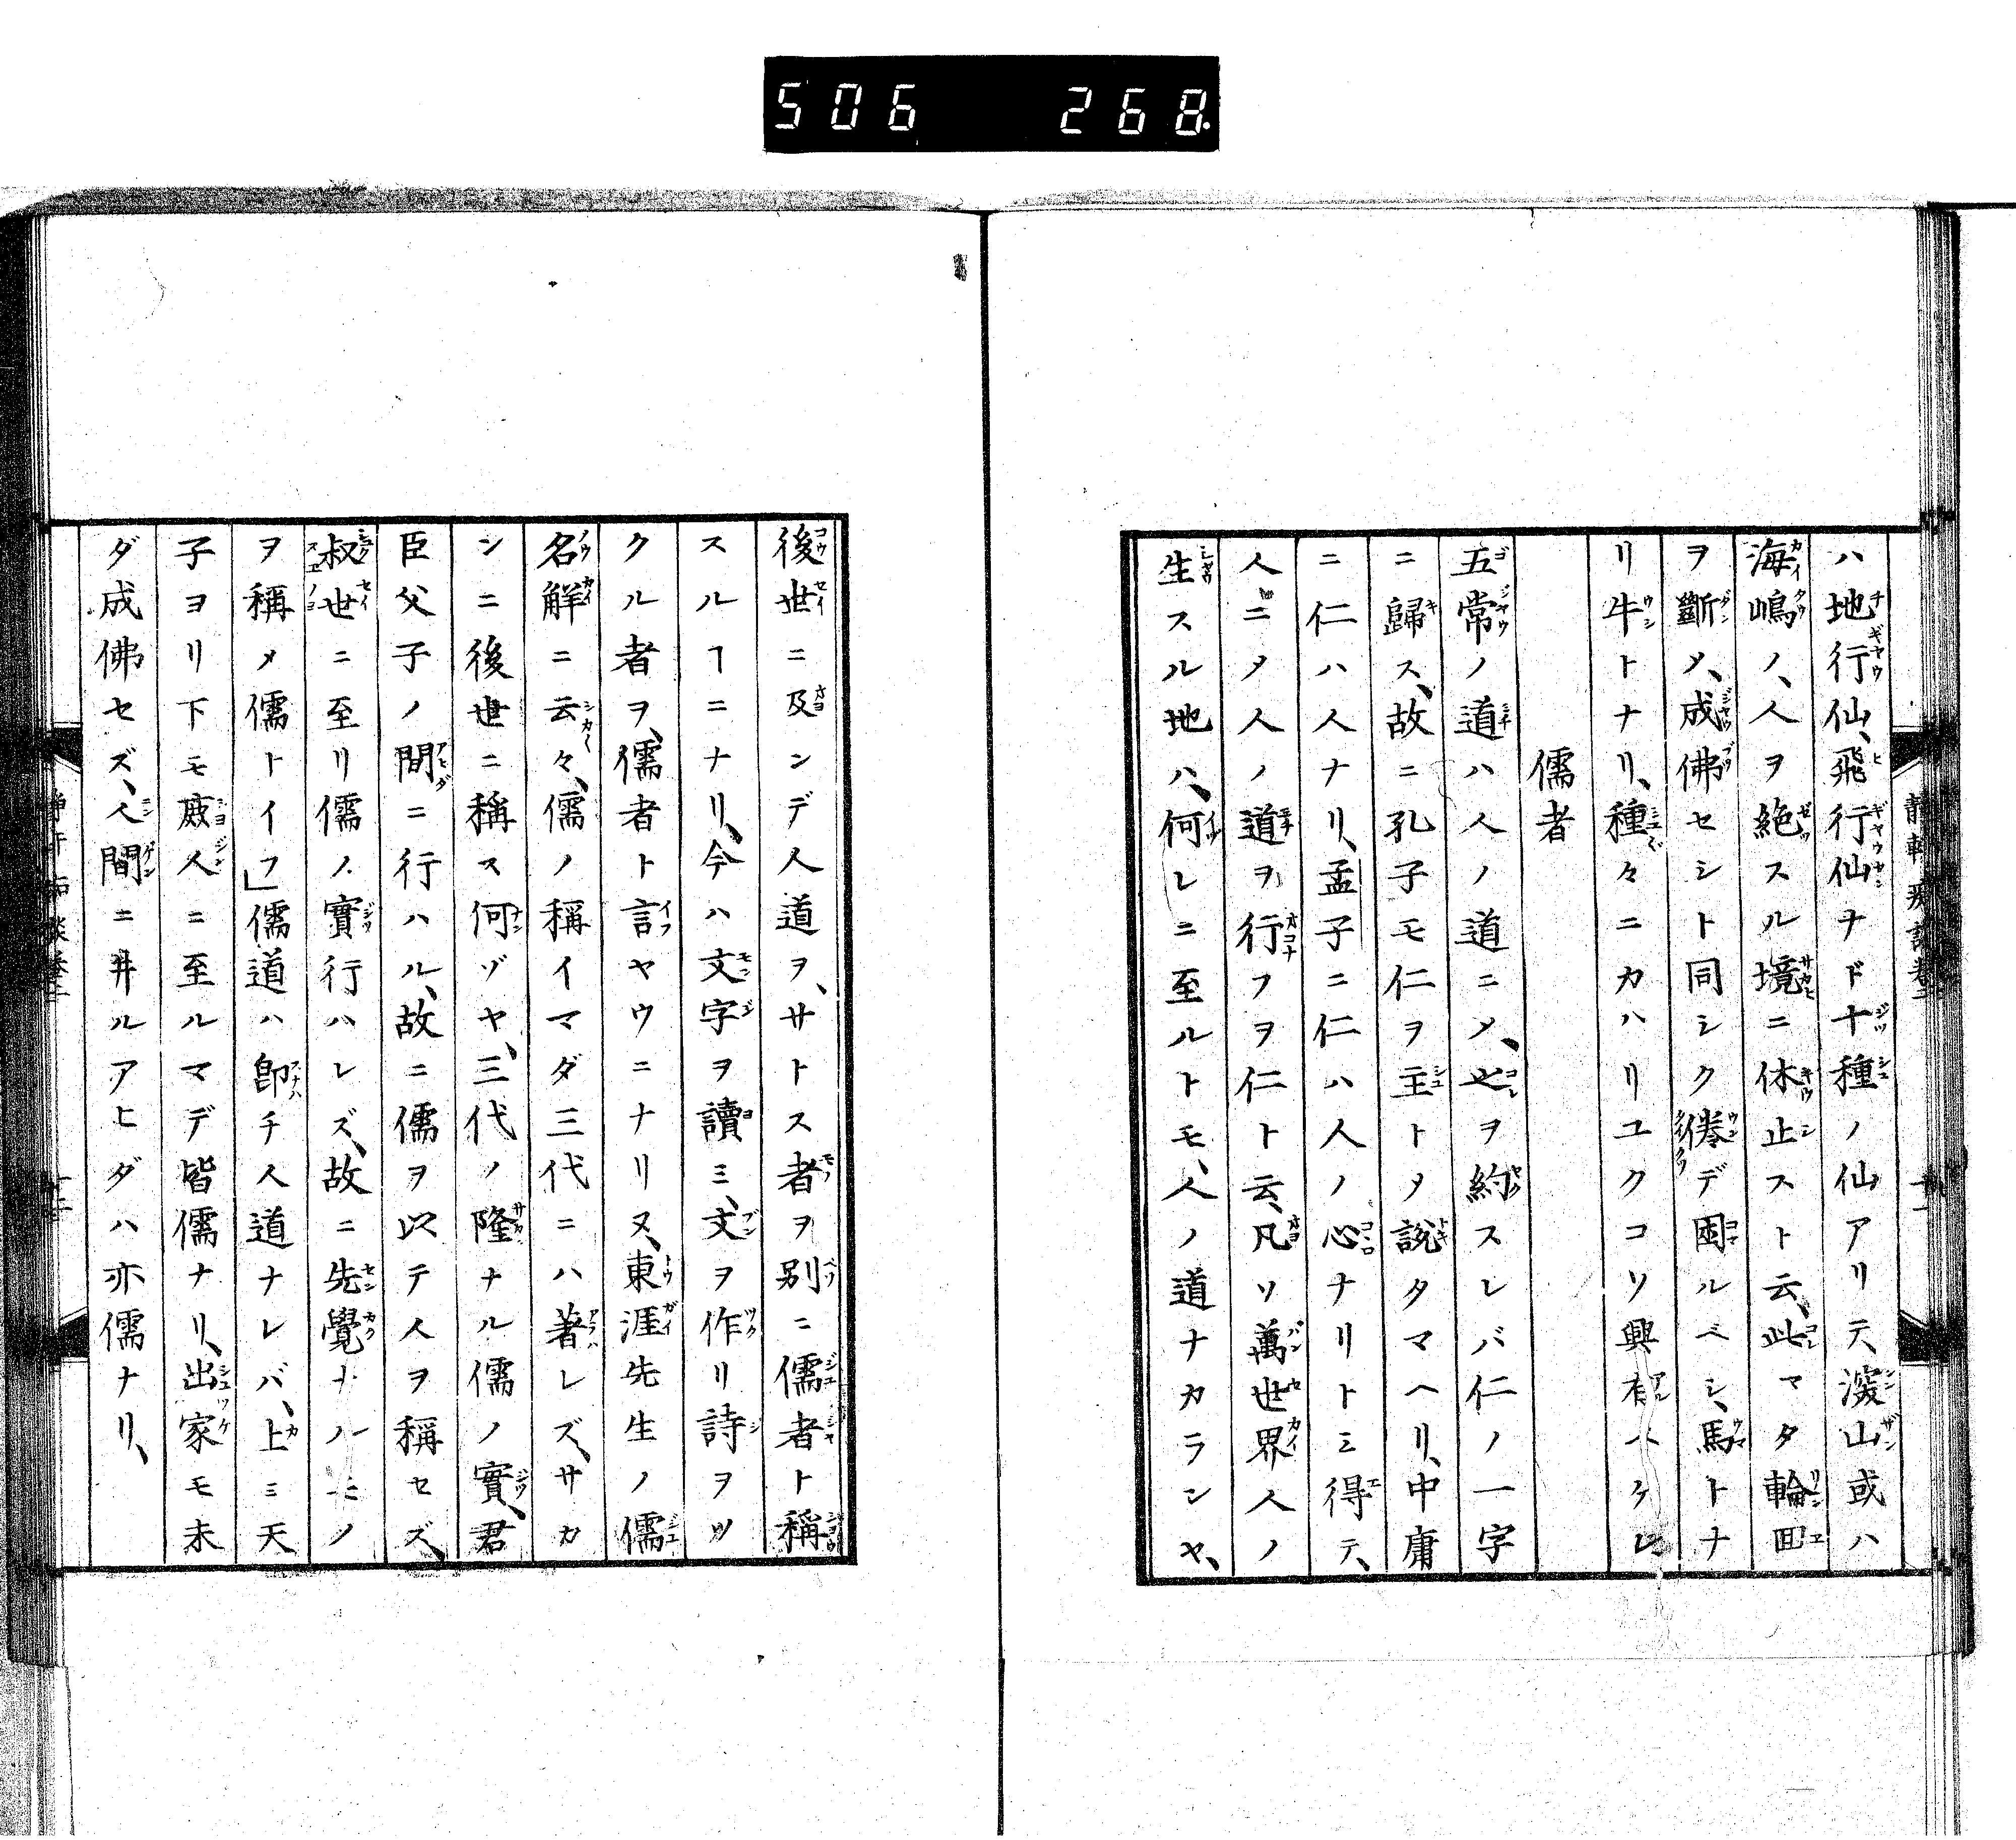 506 268
ハ地行仙、飛行仙ナド十種ノ仙アリテ深山或ハ
海嶋ノ、人ヲ絶スル境ニ休止スト云、此マタ輪囬
ヲ斷メ、成佛セシト同シク倦デ困ルベシ、馬トナ
リ牛トナリ、種々ニカハリユクコソ興有ベケレ
儒者
五常ノ道ハ人ノ道ニメ、之ヲ約スレバ仁ノ一字
ニ歸ス、故ニ孔子モ仁ヲ主トメ説タマヘリ、中庸
ニ仁ハ人ナリ、孟子ニ仁ハ人ノ心ナリトミ得テ、
人ニメ人ノ道ヲ行フヲ仁ト云、凡ソ萬世界人ノ
生スル地ハ、何レニ至ルトモ、人ノ道ナカランヤ、
後世ニ及ンデ人道ヲ、サトス者ヲ別ニ儒者ト稱
スルヿニナリ、今ハ文字ヲ讀ミ、文ヲ作リ詩ヲツ
クル者ヲ、儒者ト言ヤウニナリヌ、東涯先生ノ儒
名解ニ云々、儒ノ稱イマダ三代ニハ著レズ、サカ
シニ後世ニ稱ス何ゾヤ、三代ノ隆ナル儒ノ實、君
臣父子ノ間ニ行ハル、故ニ儒ヲ以テ人ヲ稱セズ、
叔世ニ至リ儒ノ實行ハレズ、故ニ先覺ナルモノ
ヲ稱メ儒トイフ」儒道ハ卽チ人道ナレバ、上ミ天
子ヨリ下モ庶人ニ至ルマデ皆儒ナリ、出家モ未
ダ成佛セズ、人間ニ井ルアヒダハ亦儒ナリ、